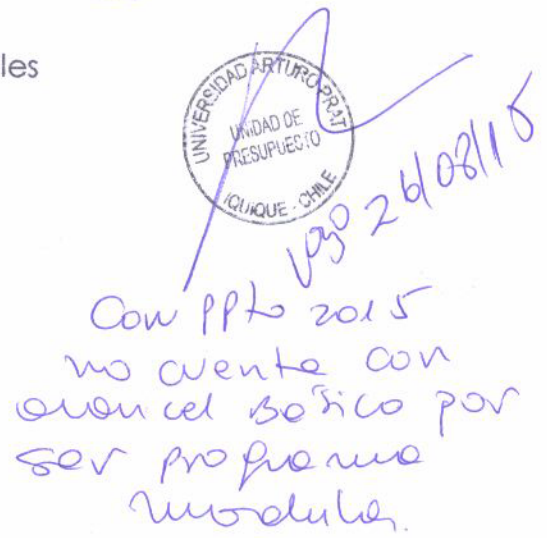 les
UNIVERSIDAD ARTURO PRAT
UNIDAD DE
PRESUPUESTO
IQUIQUE - CHILE
26/08/15
Con ppto 2015
no cuenta con
arancel Básico por
ser programa
modular.